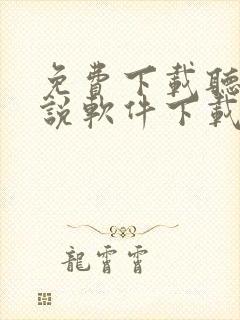 免費下載聽
說軟件下載
龍霄霄